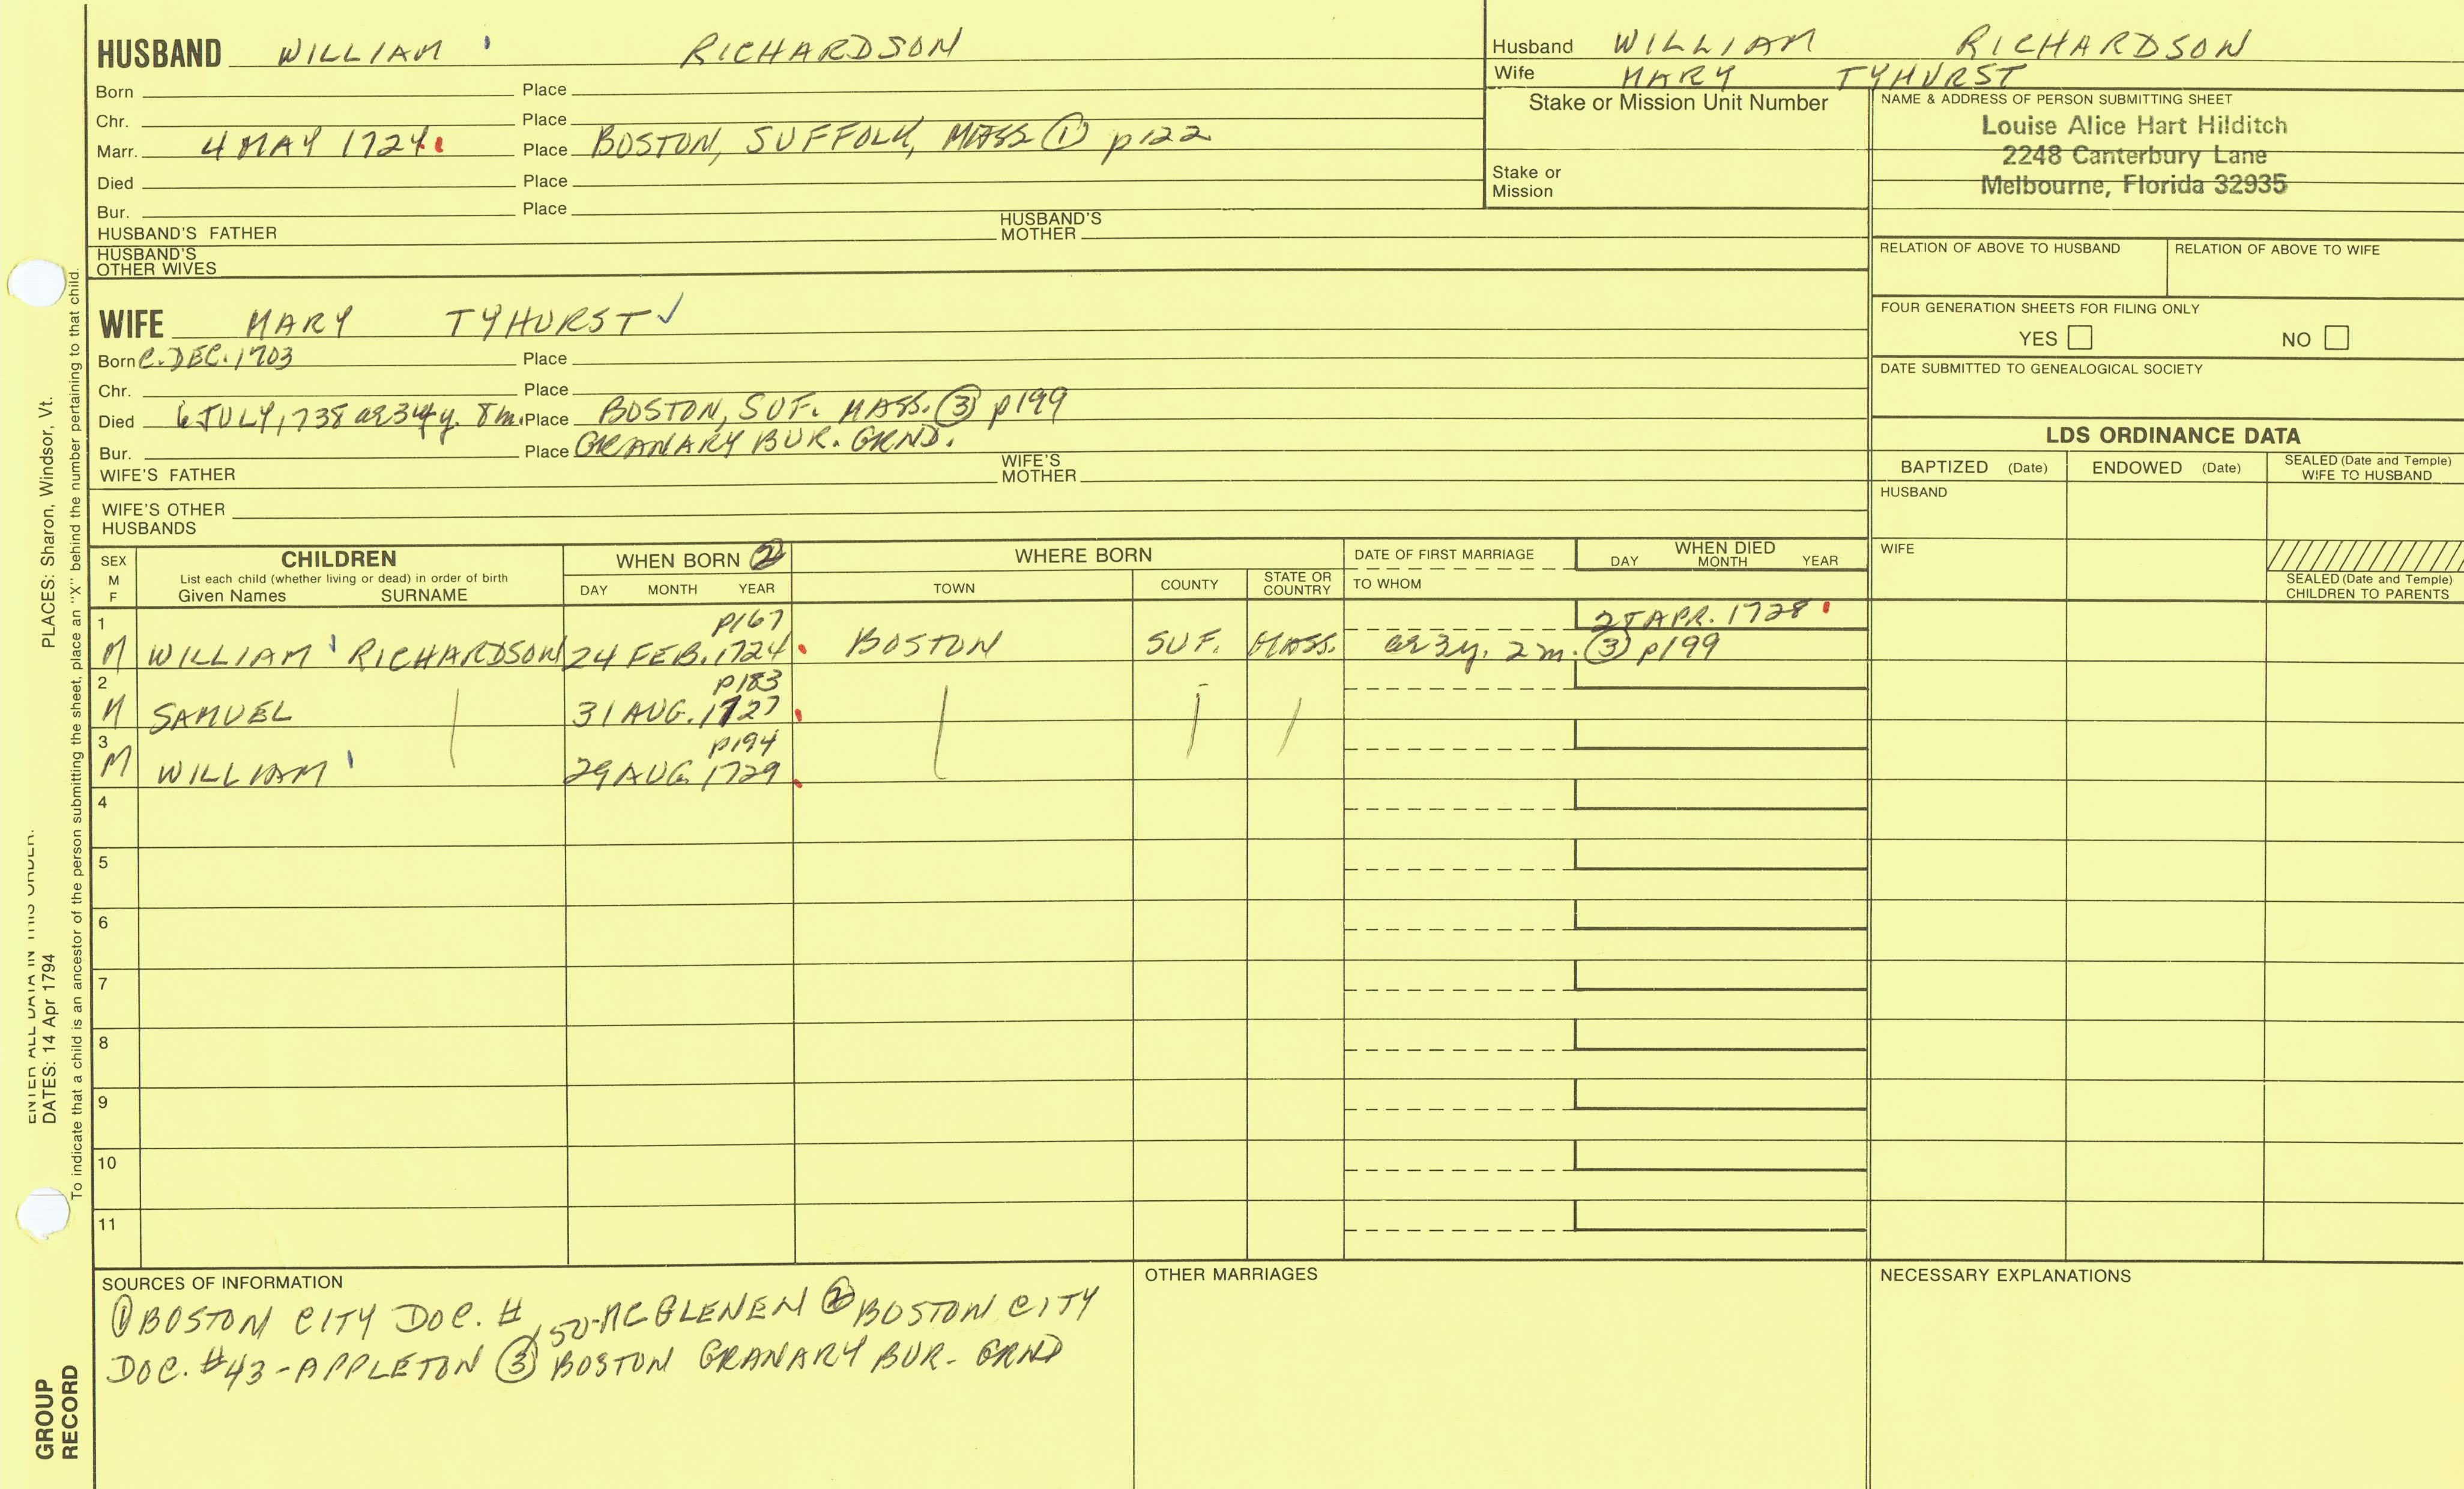 HUSBAND WILLIAM RICHARDSON
Born Place
Chr. Place
Marr. 4 MAY 1724 Place BOSTON, SUFFOLK, MASS ① p122
Died Place
Bur. Place
HUSBAND'S FATHER HUSBAND'S MOTHER
HUSBAND'S OTHER WIVES
Husband WILLIAM RICHARDSON
Wife MARY TYHURST
Stake or Mission Unit Number
Stake or Mission
NAME & ADDRESS OF PERSON SUBMITTING SHEET
Louise Alice Hart Hilditch
2248 Canterbury Lane
Melbourne, Florida 32935
RELATION OF ABOVE TO HUSBAND RELATION OF ABOVE TO WIFE
FOUR GENERATION SHEETS FOR FILING ONLY
YES NO
DATE SUBMITTED TO GENEALOGICAL SOCIETY
WIFE MARY TYHURST ✓
Born C. DEC. 1703 Place
Chr. Place
Died 6 JULY, 1738 ae 34y. 8m. Place BOSTON, SUF. MASS. ③ p199
Bur. Place GRANARY BUR. GRND.
WIFE'S FATHER WIFE'S MOTHER
WIFE'S OTHER HUSBANDS
LDS ORDINANCE DATA
BAPTIZED (Date) ENDOWED (Date) SEALED (Date and Temple) WIFE TO HUSBAND
HUSBAND
WIFE
SEALED (Date and Temple) CHILDREN TO PARENTS
SEX M F CHILDREN WHEN BORN ② WHERE BORN DATE OF FIRST MARRIAGE WHEN DIED
List each child (whether living or dead) in order of birth
Given Names SURNAME DAY MONTH YEAR TOWN COUNTY STATE OR COUNTRY TO WHOM DAY MONTH YEAR
1 p167 25 APR. 1728
M WILLIAM RICHARDSON 24 FEB. 1724 BOSTON SUF. MASS. ae 3y. 2m. ③ p199
2 p183
M SAMUEL 31 AUG. 1727
3 p194
M WILLIAM 29 AUG 1729
4
5
6
7
8
9
10
11
SOURCES OF INFORMATION
① BOSTON CITY DOC. # 150-MCGLENEN ② BOSTON CITY
DOC. #43-APPLETON ③ BOSTON GRANARY BUR. GRND
OTHER MARRIAGES
NECESSARY EXPLANATIONS
ENTER ALL DATA IN THIS ORDER:
DATES: 14 Apr 1794 PLACES: Sharon, Windsor, Vt.
To indicate that a child is an ancestor of the person submitting the sheet, place an "X" behind the number pertaining to that child.
GROUP
RECORD